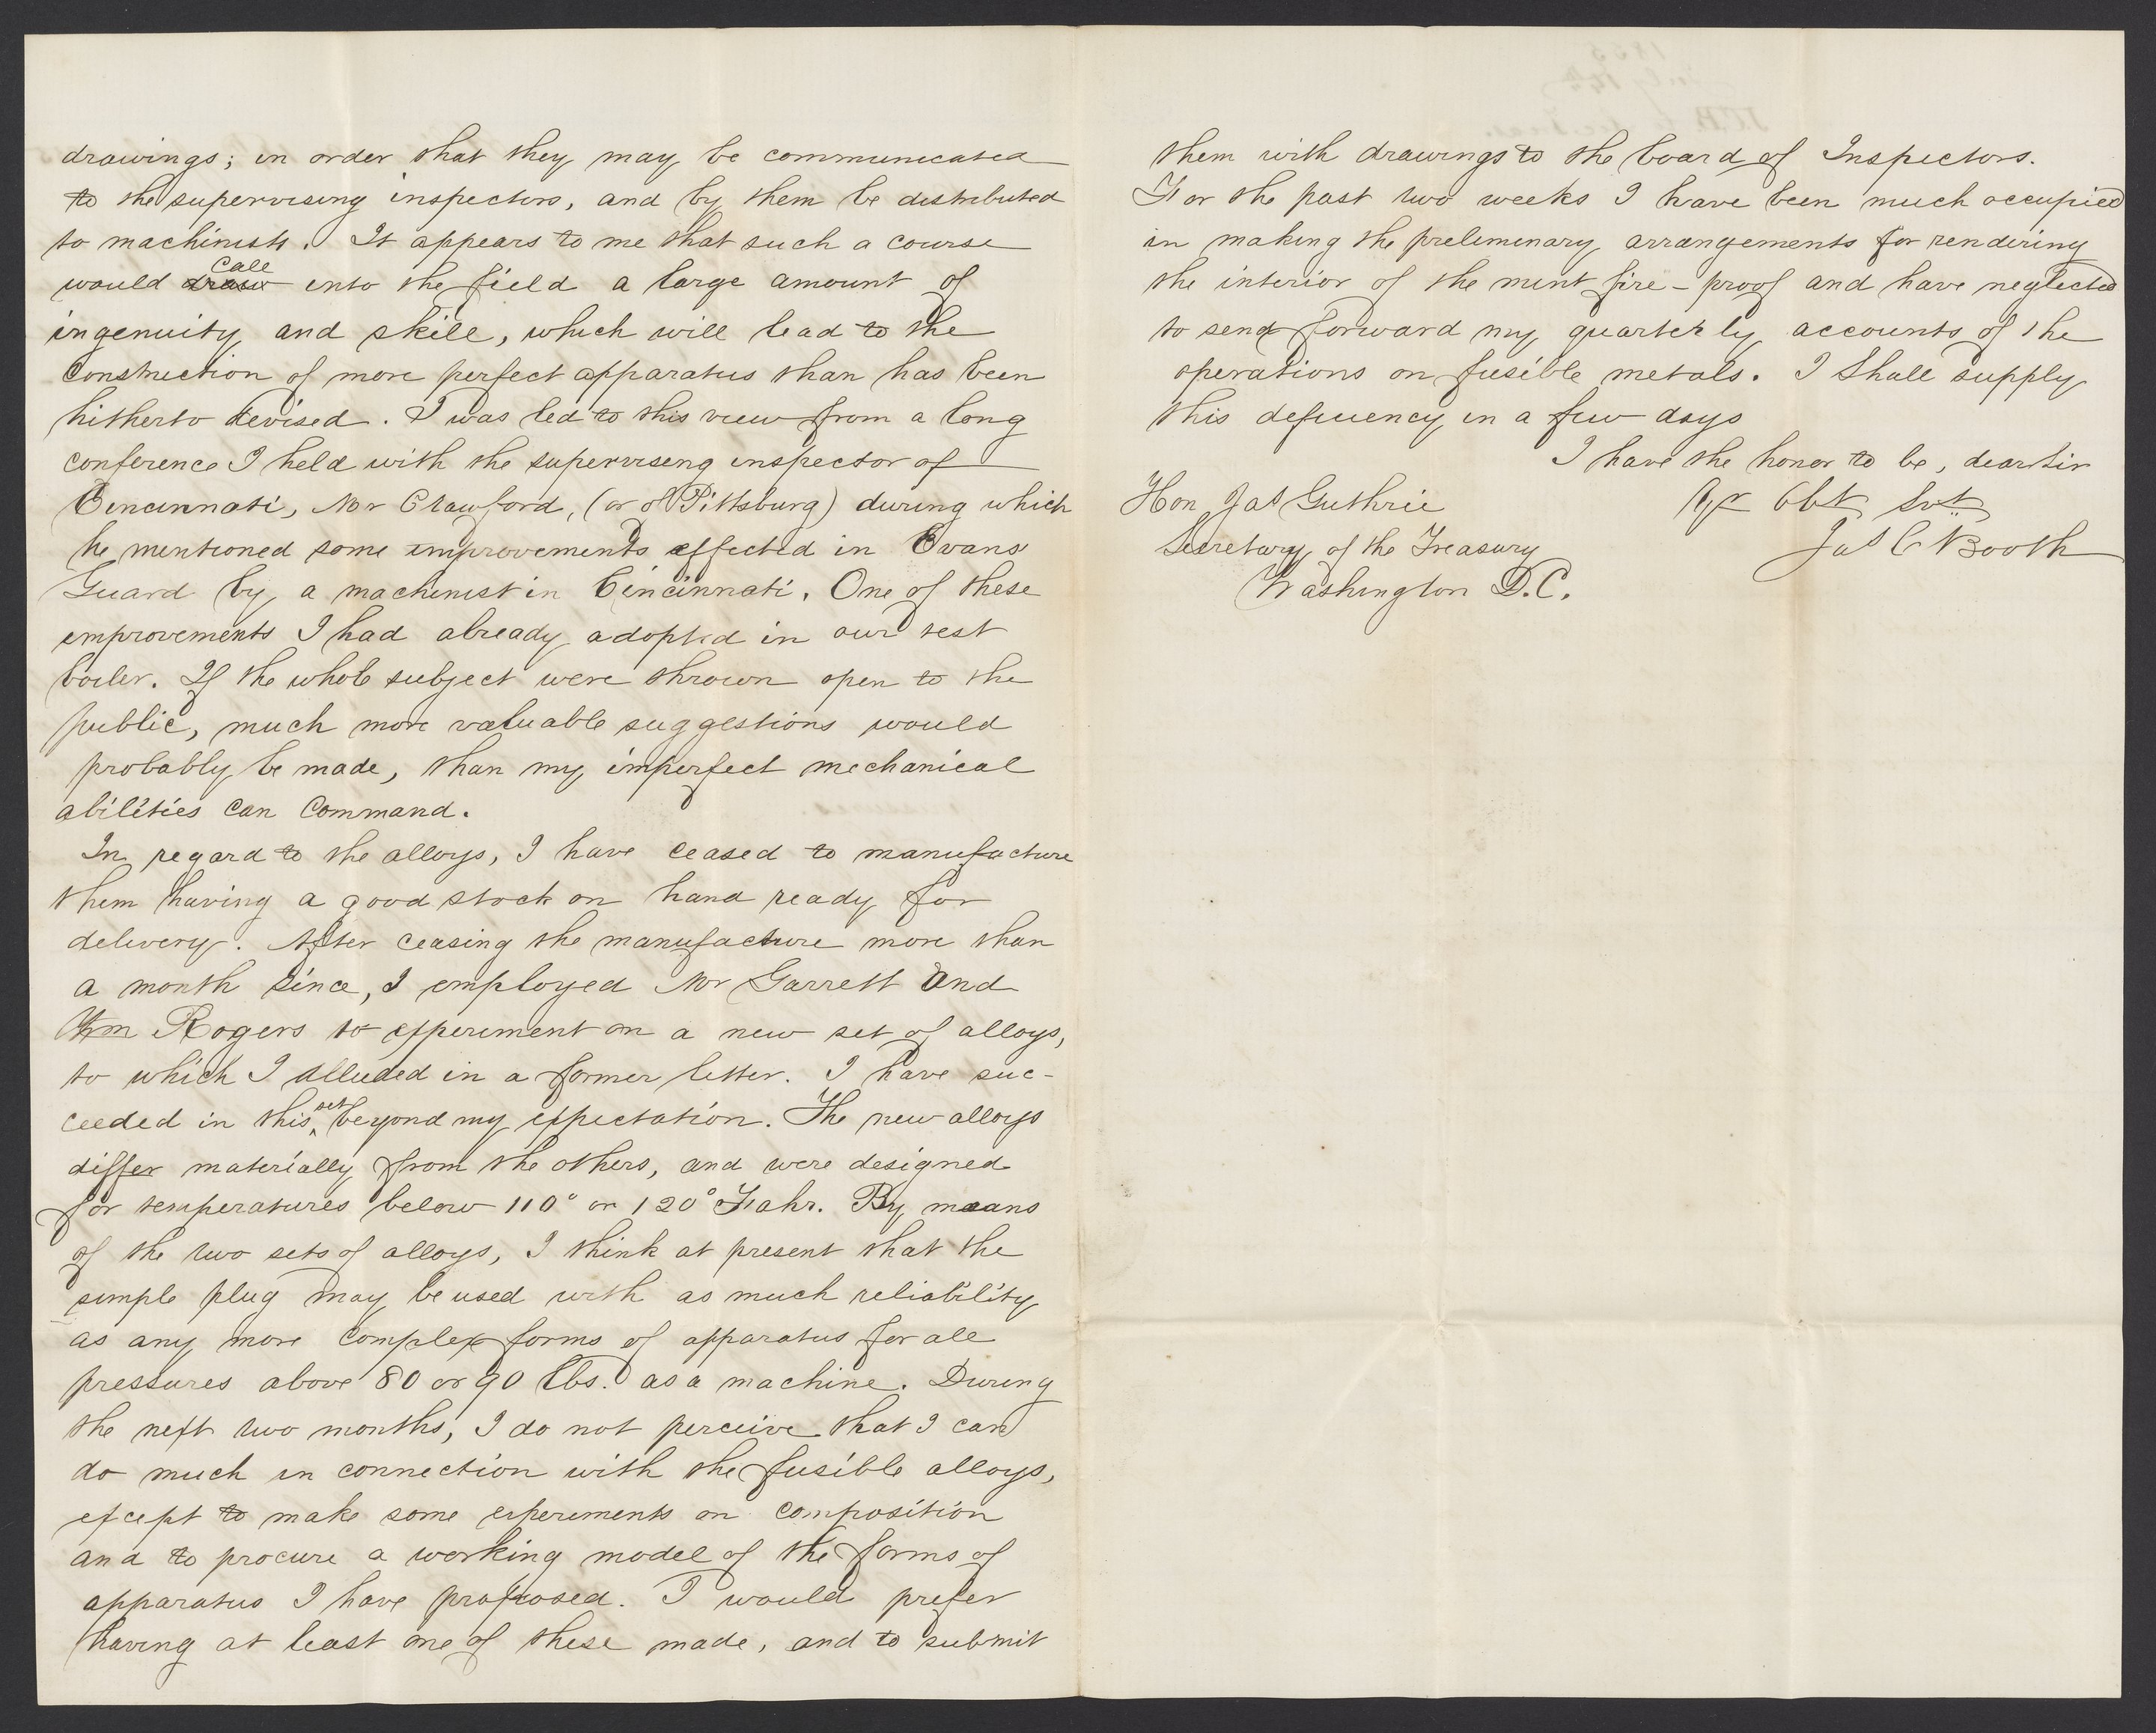 drawings; in order that they may be communicated
to the supervising inspectors, and by them be distributed
to machinists. It appears to me that such a course
would draw call into the field a large amount of
ingenuity and skill, which will lead to the
Construction of more perfect apparatus than has been
hitherto devised. I was led to this view from a long
conference I held with the supervising inspector of
Cincinnati, Mr Crawford, (or of Pittsburg) during which
he mentioned some improvements effected in Evans
Guard by a machinist in Cincinnati. One of these
improvements I had already adopted in our test
boiler. If the whole subject were thrown open to the
public, much more valuable suggestions would
probably be made, than my imperfect mechanical
abilities can Command.
In regard to the alloys, I have ceased to manufacture
them having a good stock on hand ready for
delivery. After ceasing the manufacture more than
a month since, I employed Mr Garrett and
Wm Rogers to experiment on a new set of alloys,
to which I alluded in a former letter. I have suc-
ceeded in this set beyond my expectation. The new alloys
differ materially from the others, and were designed
for temperatures below 110° or 120° Fahr. By means
of the two sets of alloys, I think at present that the
simple plug may be used with as much reliability
as any more complex forms of apparatus for all
pressures above 80 or 90 lbs. as a machine. During
the next two months, I do not perceive that I can
do much in connection with the fusible alloys,
except to make some experiments on composition
and to procure a working model of the forms of
apparatus I have proposed. I would prefer
having at least one of these made, and to submit
them with drawings to the board of Inspectors.
For the past two weeks I have been much occupied
in making the preliminary arrangements for rendering
the interior of the mint fire-proof and have neglected
to send forward my quarterly accounts of the
operations on fusible metals. I Shall supply
this deficiency in a few days
I have the honor to be, dear Sir
Hon Jas Guthrie
Yr Obt Svt
Secretary of the Treasury
Jas C Booth
Washington D.C.